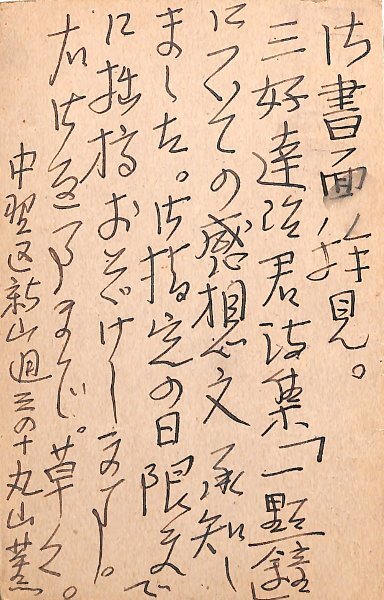 御書面拝見。
三好達治君詩集「一點鐘」
についての感想文 承知し
ました。御指定の日限まで
に拙稿おとゞけします。
右御返事まで。草々。
中野区新山通三の十 丸山薫